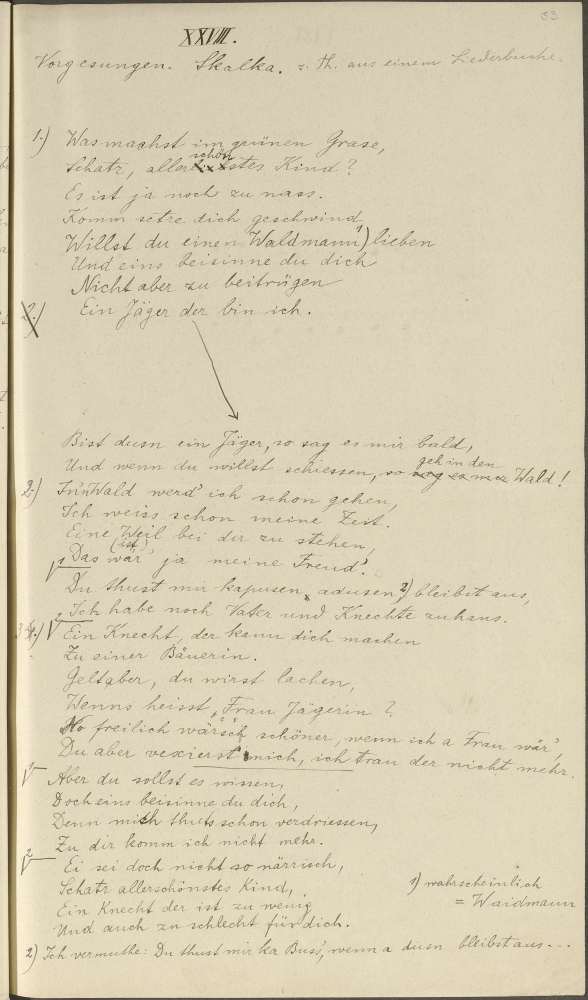 33
XXVIII.
Vorgesungen. Skalka. z. Th. aus einem Liederbuche.
1.) Was machst im grünen Grase,
schön
Schatz, aller stes Kind?
Es ist ja noch zu nass.
Komm setze dich geschwind
Willst du einen Waldmann 1) lieben
Und eins beisinne du dich
Nicht aber zu beitrügen
2.) Ein Jäger der bin ich.
Bist dusn ein Jäger, so sag es mir bald,
geh in den
Und wenn du willst schiessen, so sag es mir Wald!
2.) In'n Wald werd' ich schon gehen,
Ich weiss schon meine Zeit.
Eine Weil bei dir zu stehen,
(ist)
1 Das wär' ja meine Freud'.
Du thust mir kapusen, adusen 2) bleibst aus,
Ich habe noch Vater und Knechte zuhaus.
3.) Ein Knecht, der kann dich machen
Zu einer Bäuerin.
Gelt aber, du wirst lachen,
Wenns heisst, Frau Jägerin?
No freilich wärsch schöner, wenn ich a Frau wär',
Du aber vexierst mich, ich trau der nicht mehr.
Aber du sollst es wissen,
Doch eins beisinne du dich,
Denn mich thuts schon verdriessen,
Zu dir komm ich nicht mehr.
2 Ei sei doch nicht so närrisch,
Schatz allerschönstes Kind,
Ein Knecht der ist zu wenig
Und auch zu schlecht für dich.
1) wahrscheinlich
= Waidmann
2) Ich vermuthe: Du thust mir ka Buss', wenn a dusn bleibst aus...